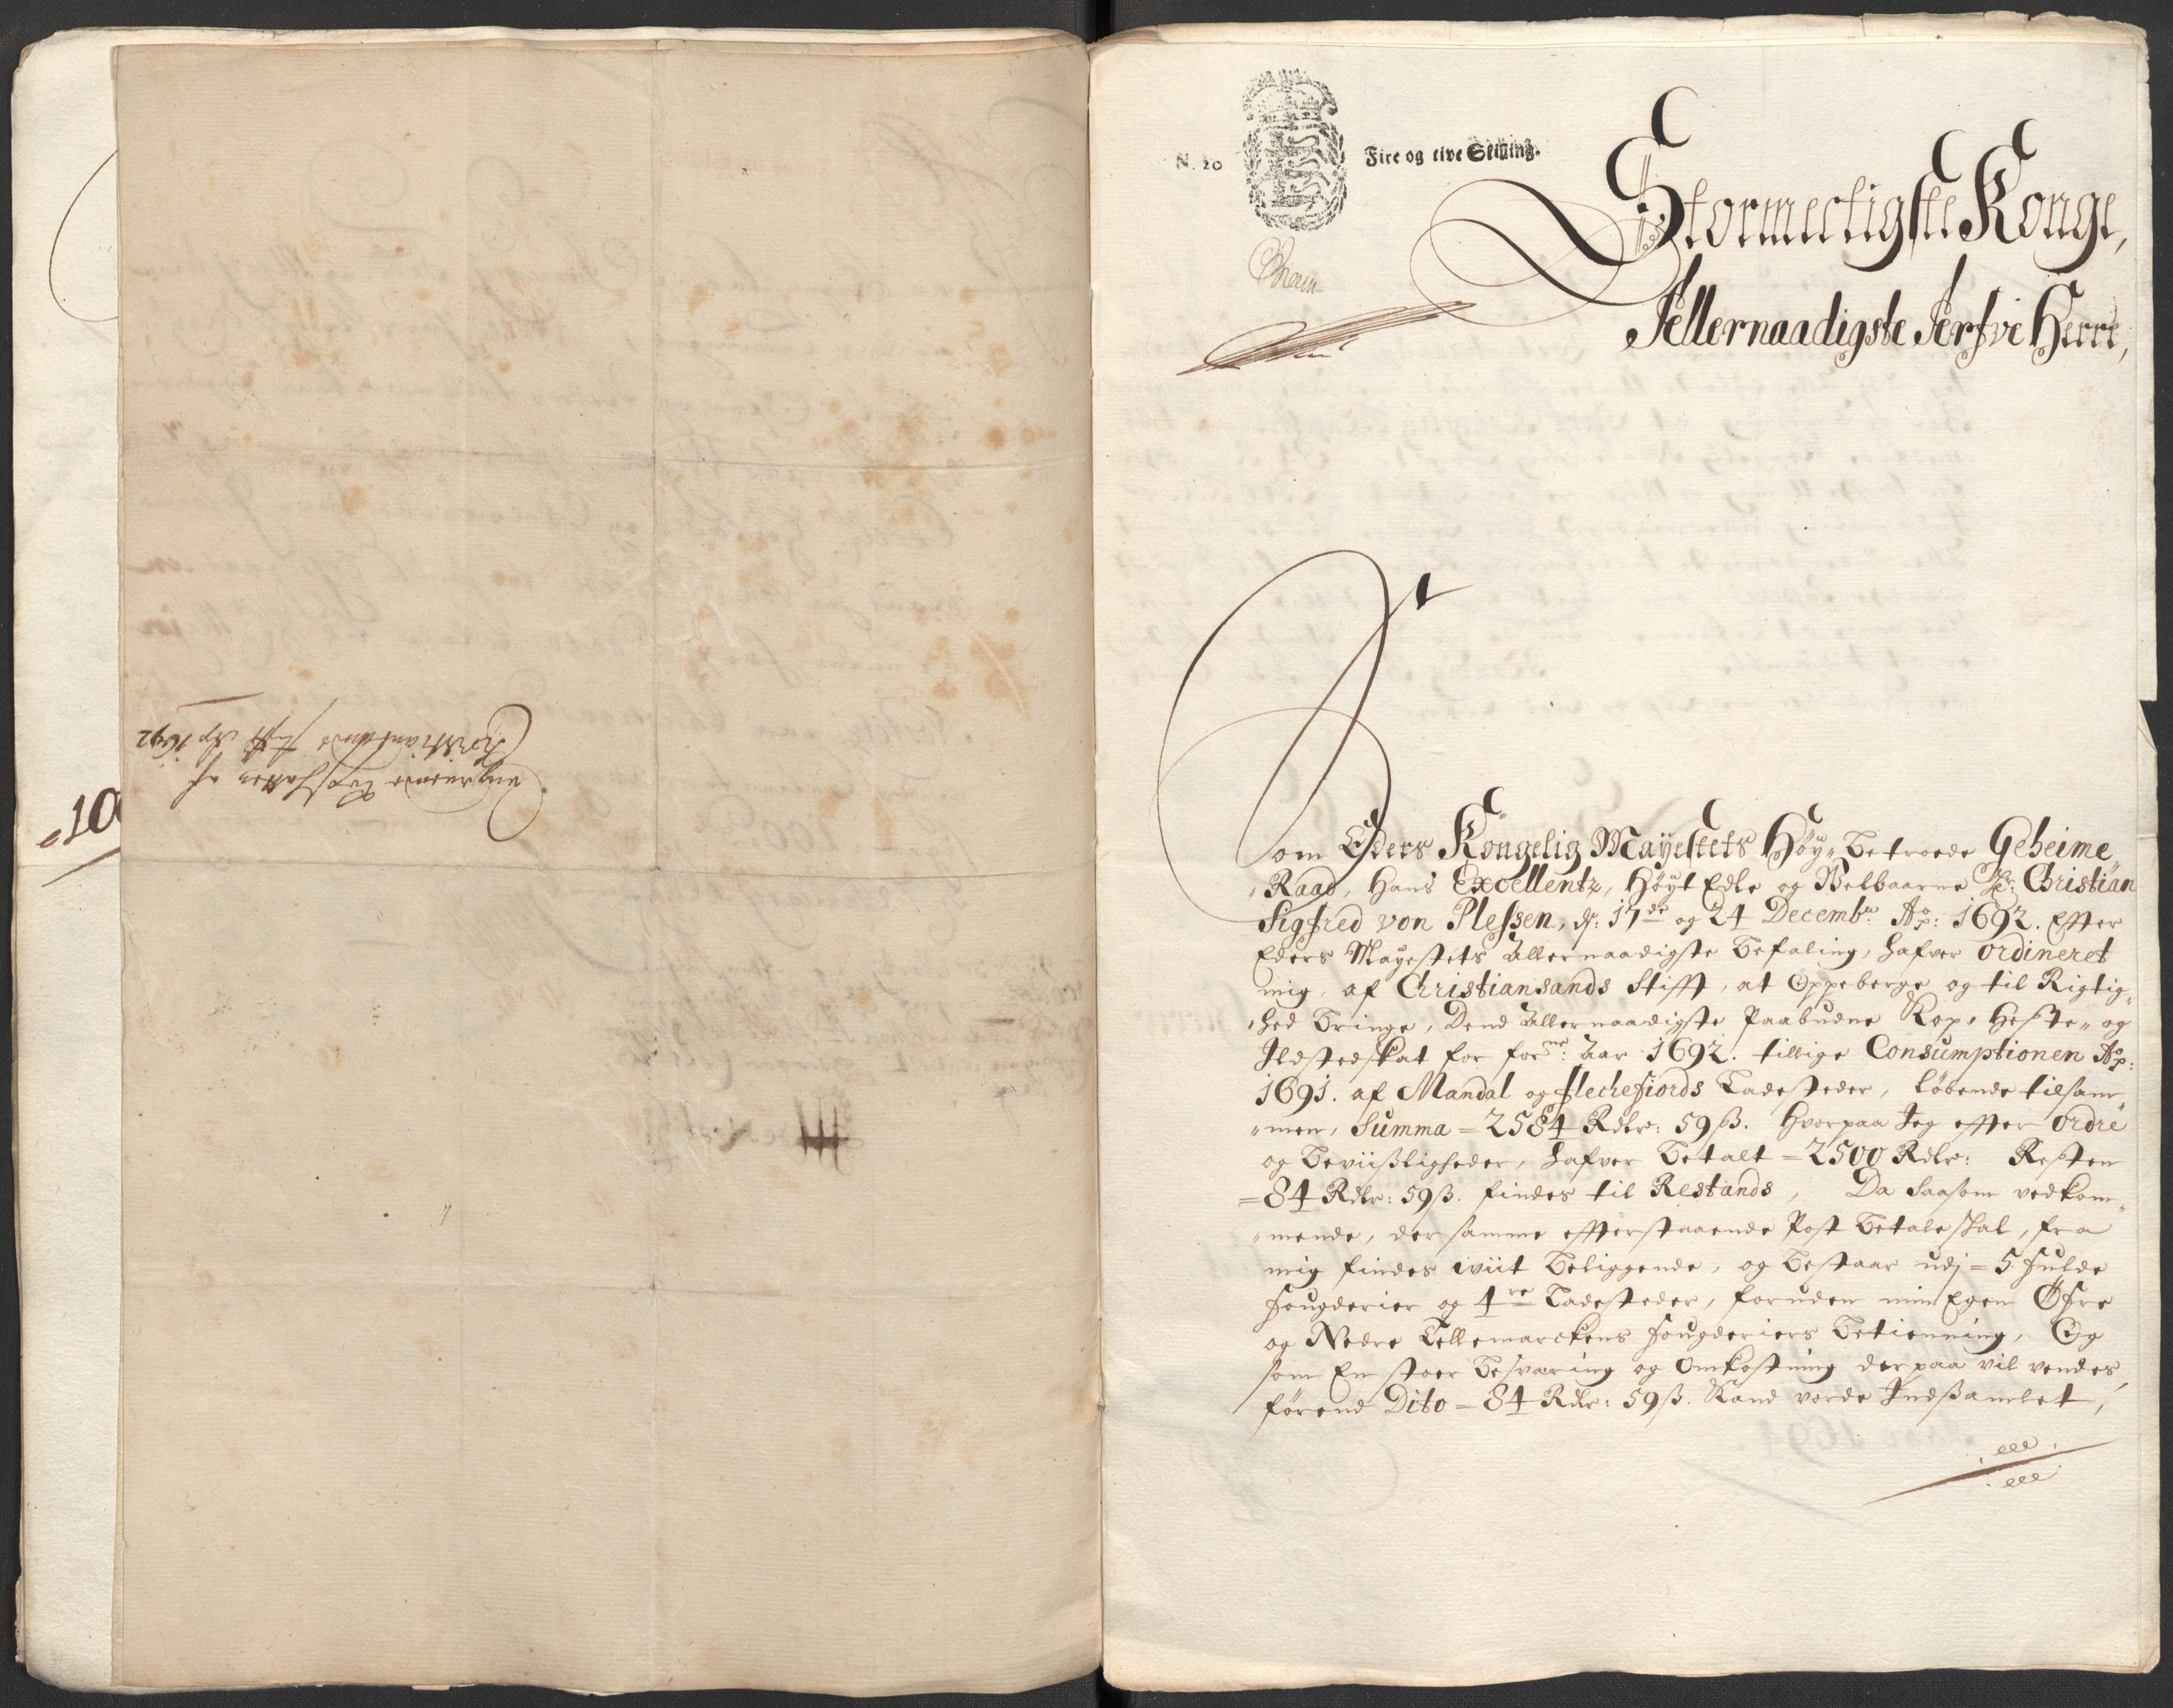 Christiansands stifft Ao 1692
10
N. 20
Fire og tive Skilling.
Stormectigste Konge,
Allernaadigste Arfve Herre,
Som Eders Kongelig Mayestets Høy„ Betroede Geheime„
„Raad, Hans Excellentz, Høyt Edle og Velbaarne Hr: Christian
Sigfred von Plessen, d: 17de og 24 Decembr Ao: 1692. Effter
Eders Mayestets Allernaadigste Befaling, hafver ordineret
mig, af Christiansands Stifft, at Oppeberge og til Rigtig„
„hed bringe, Dend Allernaadigste Paabudne Kop„ Heste„ og
Ildstedskat for forne: Aar 1692. tillige Consumptionen Ao:
1691. af Mandal og Flechefiords Ladesteder, løbende tilsam„
„men, Summa = 2584 Rdlr: 59 ß. hvorpaa Jeg effter ordre
og beviisligheder, hafver betalt = 2500 Rdlr: Resten
= 84 Rdlr: 59 ß. findes til Restands, Da saasom vedkom„
„mende, der samme effterstaaende Post betale skal, fra
mig findes wiit beliggende, og bestaar udj = 5 fulde
fougderier og 4re Ladesteder, foruden min Egen Øfre
og Nedre Tellemarckens fougderiers betienning, Og
som En stoer besværing og Omkostning derpaa vil vendes,
førend Dito = 84 Rdlr: 59 ß. kand vorde Indsamlet,